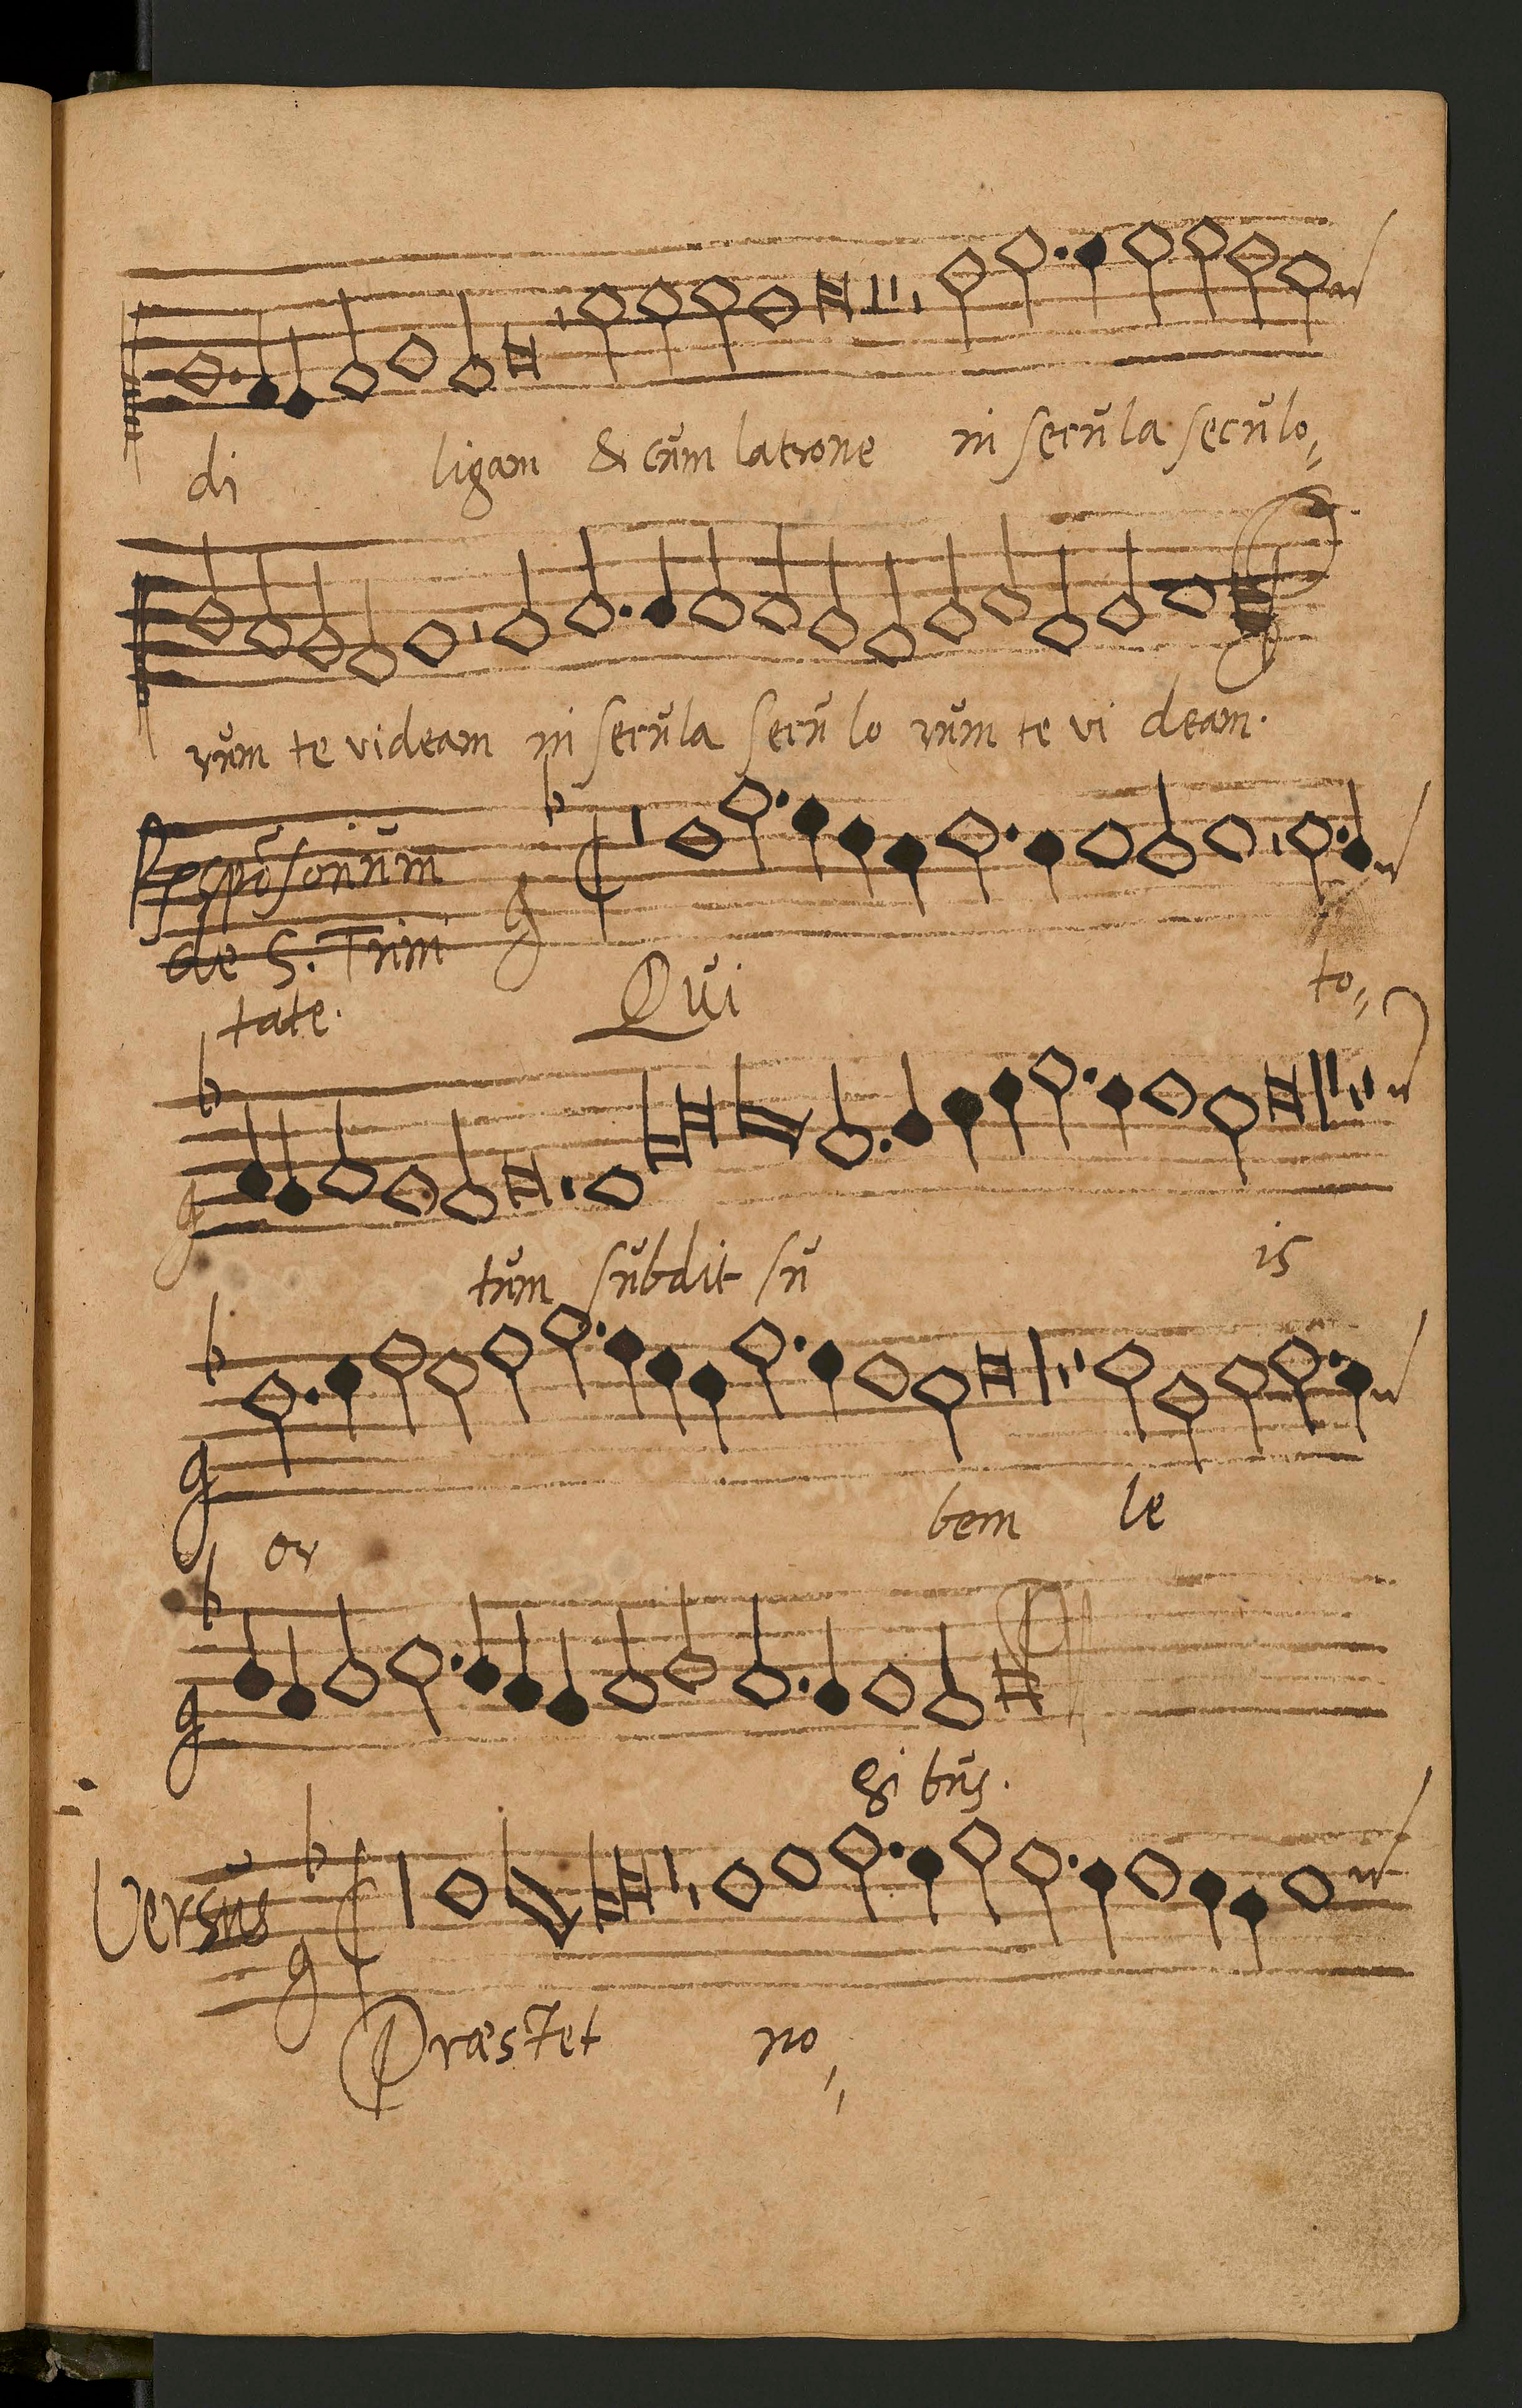 di ligam & cŭm latrone in secŭla secŭlo
rŭm te videam in secŭla secŭ lo rŭm te vi deam.
Respōsoriŭm
de S. Trini
tate. Qŭi to
tŭm sŭbdit sŭ is
or bem le
gi bŭs.
Versŭs
Præstet no